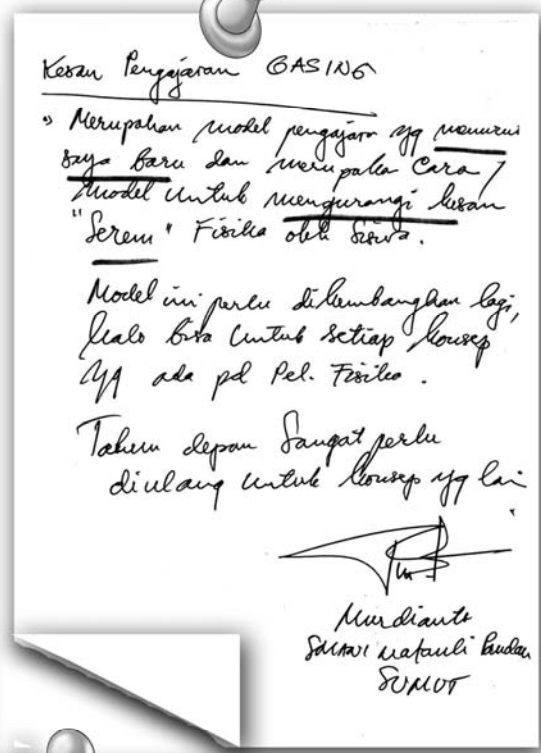 Kesan Pengajaran GASING
" Merupakan model pengajaran yg menurut
saya baru dan merupaka Cara /
model untuk mengurangi kesan
"Serem" Fisika oleh Siswa.
Model ini perlu dikembangkan lagi,
kalo bisa untuk setiap konsep
yg ada pd Pel. Fisika.
Tahun depan Sangat perlu
diulang untuk konsep yg lain
Murdianto
Matauli Pandan
SUMUT